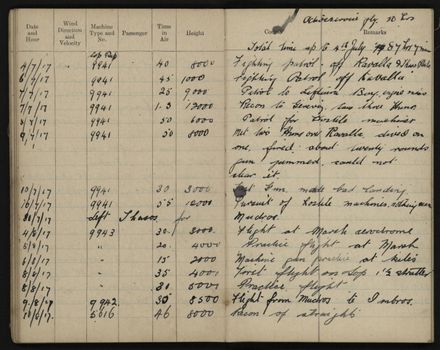 Date and Hour Wind Direction and Velocity Machine Type and No. Passenger Time in Air Height Remarks
Total time up to 4th July
4/7/17 9941 40 8000 Fighting patrol off Kavalla
9941 45 1000 Fighting Patrol off Kavalla
7/7/17 9941 25 9000 Patrol to Leftera Bay,
7/7/17 9941 1.5 12000 Recon to saw three Huns
9941 50 6000 Patrol for hostile machines
9941 50 8000 Met two Huns over Kavalla dived on
one, fired about twenty rounds
gun jammed, could not
clear it.
10/7/17 9941 30 3000 made bad landing
9941 55 12000 Pursuit of hostile machines.
/7/17 Left Thasos for Mudros.
4/8/17 9943 30 3000 Flight at Marsh aerodrome
" 20 4000 Practice flight at Marsh
6/8/17 " 15 2000 Machine gun practice at kites
8/8/17 " 35 4000 Test flight on Sop 1½ strutter
8/8/17 " 30 5000 Practice flight
9/8/17 9942 35 8500 Flight from Mudros to Imbros.
10/8/17 46 8000 Recon of straights